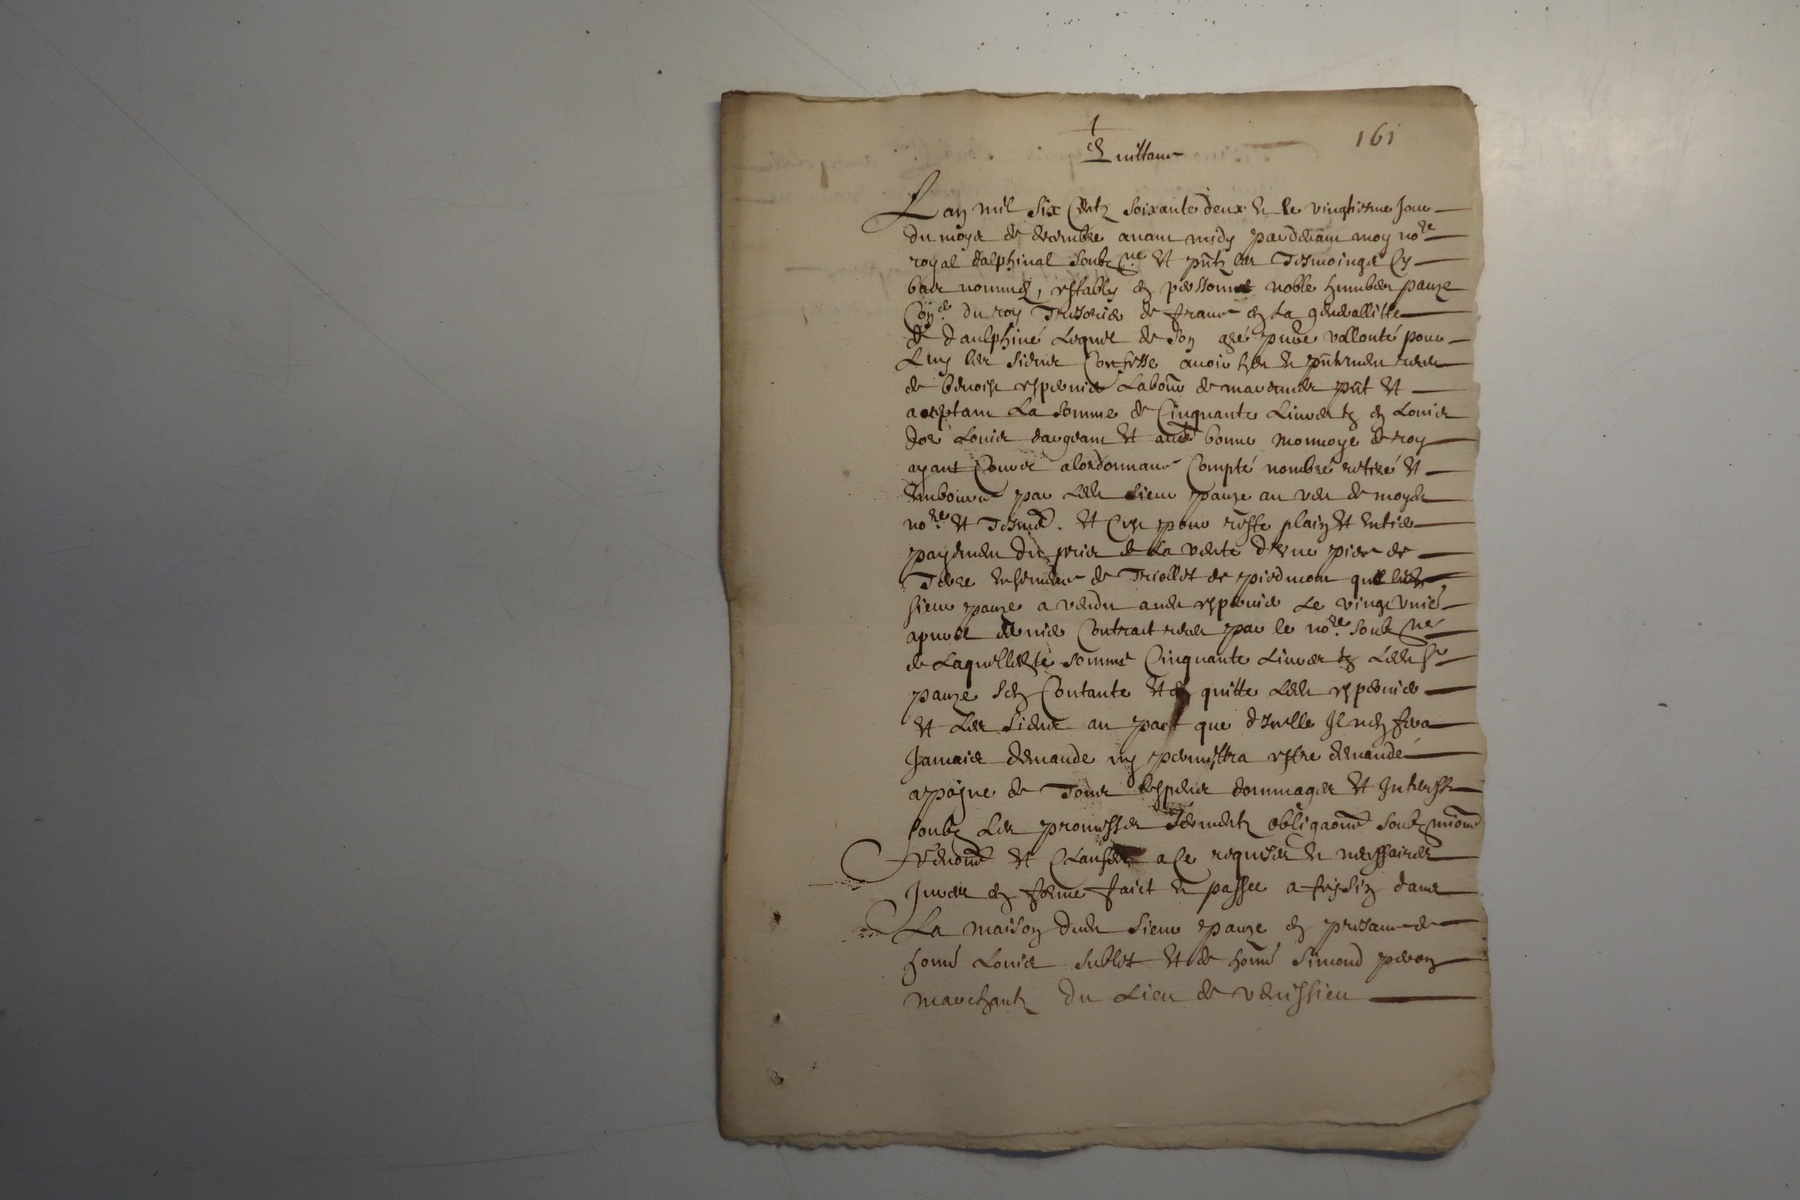 161
Quittance
Lan mil six centz soixante deux & le vingtiesme jour
du moys de decembre avant midy pardevant moy nore
royal dalphinal soubzne et pntz les tesmoings cy
bas nommes, estably en personne noble humbert
Conr du roy Tresorier de france en la generallitte
de dauphiné Lequel de son gré pure vollonté pour
Luy les siens Confesse avoir heu & reellement receu
de benoist Labour de pnt et
acceptant La somme de Cinquante Livres tz en Louis
dor Louis dargeant et autre bonne monnoye de roy
ayant Cours alordonnance Compté nombré retiré et
emboursé par Ledt sieur au veu de moydt
nore et Tesmes. et C'est pour reste plain et entier
payement du prix de la vente d'une piece de
Terre de que ledt
sieur a vendu audt le vingt unie
apvril dernier Contract receu par le nore soubzne
de Laquelle somme Cinquante Livres tz Ledt sr
sen Contante et en quitte Ledt
et Les siens au pact que d'Icelle Il nen fera
Jamais demande ny permettra estre demandé
apayne de Tous despens dommages et Interestz
soubz Les promesses sermentz obligaons soubzmions
renons et Clauses a Ce requises & necessaires
Jurees en forme faict & passé a dans
La maison dudt sieur en presance de
honn Louis Sublet et de honn Simond
marchantz du Lieu de venissieu